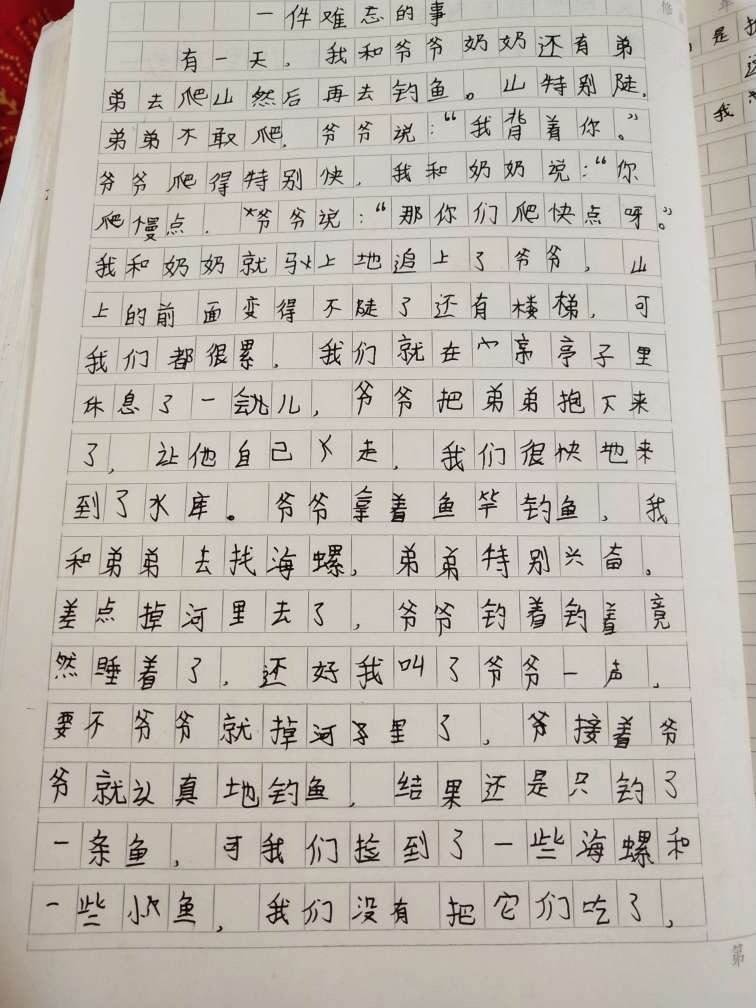 一件难忘的事
有一天，我和爷爷奶奶还有弟
弟去爬山然后再去钓鱼。山特别陡，
弟弟不敢爬，爷爷说：“我背着你。”
爷爷爬得特别快，我和奶奶说：“你
爬慢点，爷爷说：“那你们爬快点呀。”
我和奶奶就马上地追上了爷爷，山
上的前面变得不陡了还有楼梯，可
我们都很累，我们就在亭子里
休息了一会儿，爷爷把弟弟抱下来
了，让他自己走，我们很快地来
到了水库。爷爷拿着鱼竿钓鱼，我
和弟弟去找海螺，弟弟特别兴奋。
差点掉河里去了，爷爷钓着钓着竟
然睡着了，还好我叫了爷爷一声，
要不爷爷就掉河里了，接着爷
爷就认真地钓鱼，结果还是只钓了
一条鱼，可我们捡到了一些海螺和
一些小鱼，我们没有把它们吃了，
第
是
我